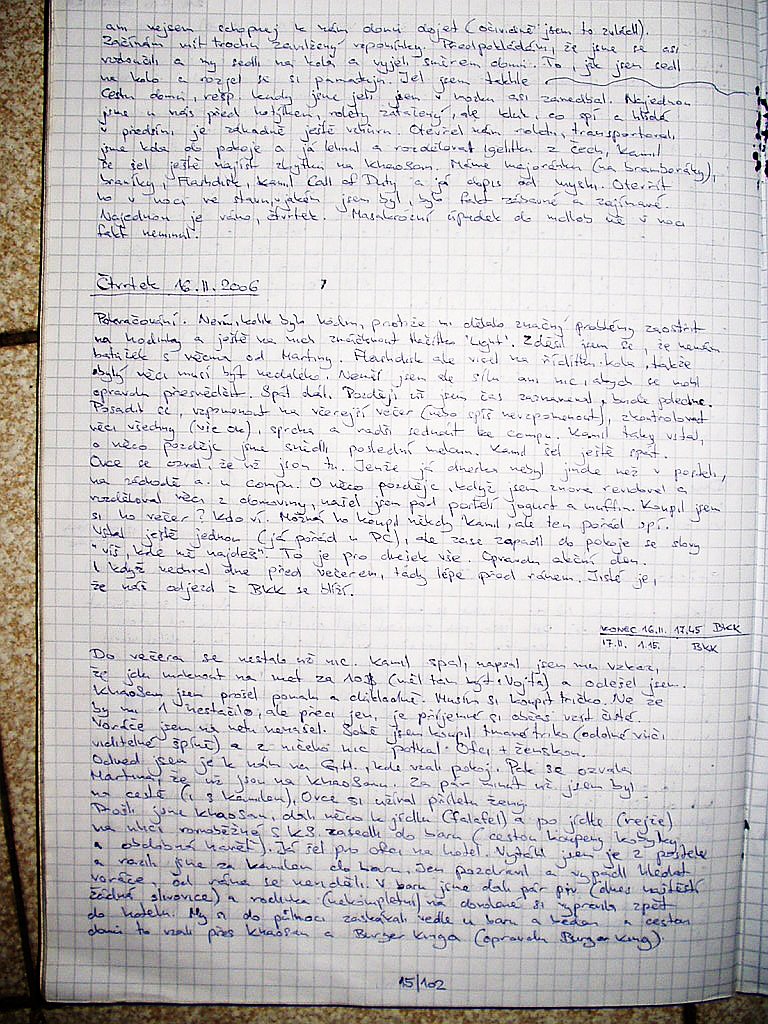 am nejsem schopnej k nám domů dojet (očividně jsem to zvládl).
Začínám mít trochu zamlžený vzpomínky. Předpokládám, že jsme se asi
rozloučili a my sedli na kola a vyjeli směrem domů. To, jak jsem sedl
na kolo a rozjel se si pamatuju. Jel jsem takhle
Cestu domů, resp. kudy jsme jeli jsem v mozku asi zanedbal. Najednou
jsme u nás před hotýlkem, rolety zatažený, ale kluk, co spí a hlídá
v předsíni je záhadně ještě vzhůru. Otevřel nám roletu, transportovali
jsme kola do pokoje a já lehnul a rozdělovat igelitku z Čech, Kamil
že šel ještě najíst zbytku na KhaoSan. Máme majoránku (na bramboráky),
braníky, Flashdisk, Kamil Call of Duty a já dopis od myši. Otevřít
ho v noci ve stavu, v jakém jsem byl, bylo fakt zábavné a zajímavé.
Najednou je ráno, čtvrtek. Masakroční úpadek do mdlob už v noci
fakt neminul.
Čtvrtek 16.11.2006
Pokračování. Nevím, kolik bylo hodin, protože mi dělalo značný problémy zaostřit
na hodinky a ještě na nich zmáčknout tlačítko 'Light'. Zděsil jsem se, že nemám
batůžek s věcma od Martiny. Flashdisk ale visel na řídítkách kola, takže
zbylý věci musí být nedaleko. Neměl jsem ale sílu ani nic, abych se mohl
opravdu přesvědčit. Spát dál. Později už jsem čas zaznamenal, bude poledne.
Posadit se, vzpomenout na včerejší večer (nebo spíš nevzpomenout), zkontrolovat
věci všechny (vše ok), sprcha a radši sednout ke compu. Kamil taky vstal,
o něco později jsme snědli poslední meloun. Kamil šel ještě spát.
Ovce se ozval, že už jsou tu. Jenže já dneska nebyl jinde než v posteli,
na záchodě a u compu. O něco později, když jsem znova revidoval a
rozděloval věci z domoviny, našel jsem pod postelí jogurt a muffin. Koupil jsem
si ho večer? Kdo ví. Možná ho koupil někdy Kamil, ale ten pořád spí.
Vstal ještě jednou (já pořád u PC), ale zase zapadl do pokoje se slovy
"víš, kde mě najdeš". To je pro dnešek vše. Opravdu akční den.
I když nechval dne před večerem, tady lépe před ránem. Jisté je,
že náš odjezd z BKK se blíží.
KONEC 16.11. 17.45 BKK
17.11. 1.15. BKK
Do večera se nestalo už nic. Kamil spal, napsal jsem mu vzkaz,
že jdu mrknout na net za 10B (měl tam být Vojta) a odešel jsem.
KhaoSan jsem prošel pomalu a důkladně. Musím si koupit tričko. Ne že
by mi 1 nestačilo, ale přeci jen, je příjemné si občas vzít čisté.
Voráče jsem na netu nenašel. Sobě jsem koupil tmavé triko (odolné vůči
viditelné špíně) a z ničeho nic potkal Ofci + ženskou.
Odved jsem je k nám na G.H., kde vzali pokoj. Pak se ozvala
Martina, že už jsou na KhaoSanu. Za pár minut už jsem byl
na cestě (i s Kamilem), Ovce si užíval příletu ženy.
Prošli jsme KhaoSan, dali něco k jídlu (falafel) a po jídle (rejže)
na ulici rovnoběžné s K.S. zasedli do baru (cestou koupeny kobylky
a obdobná havěť). Já šel pro Ofci na hotel. Vytáhl jsem je z postele
a razili jsme za Kamilem do baru. Jen pozdravil a vypadl hledat
voráče, od rána se neviděli. V baru jsme dali pár piv (dnes naštěstí
žádná slivovice) a rodinka (nekompletní) na dovolené si vyrazila zpět
do hotelu. My si do půlnoci zaskávali vedle u baru a cestou
domů to vzali přes KhaoSan a Burger Kinga (opravdu Burger King).
15/102